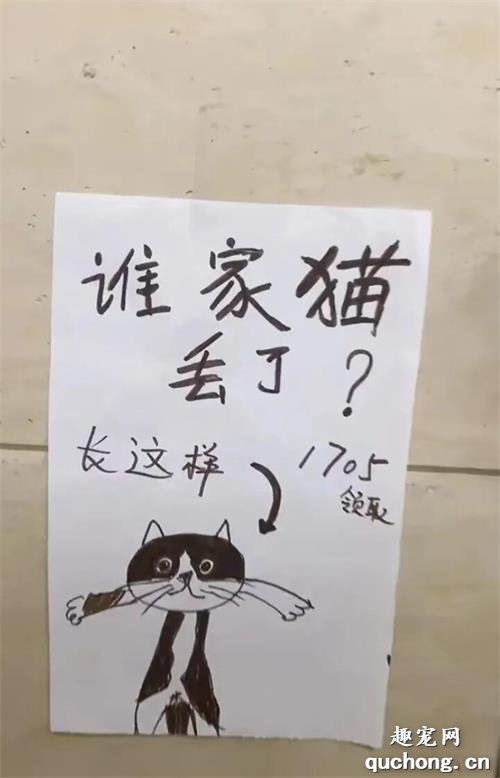 谁家猫
丢了？
长这样
1705
领取
趣宠网
quchong.cn